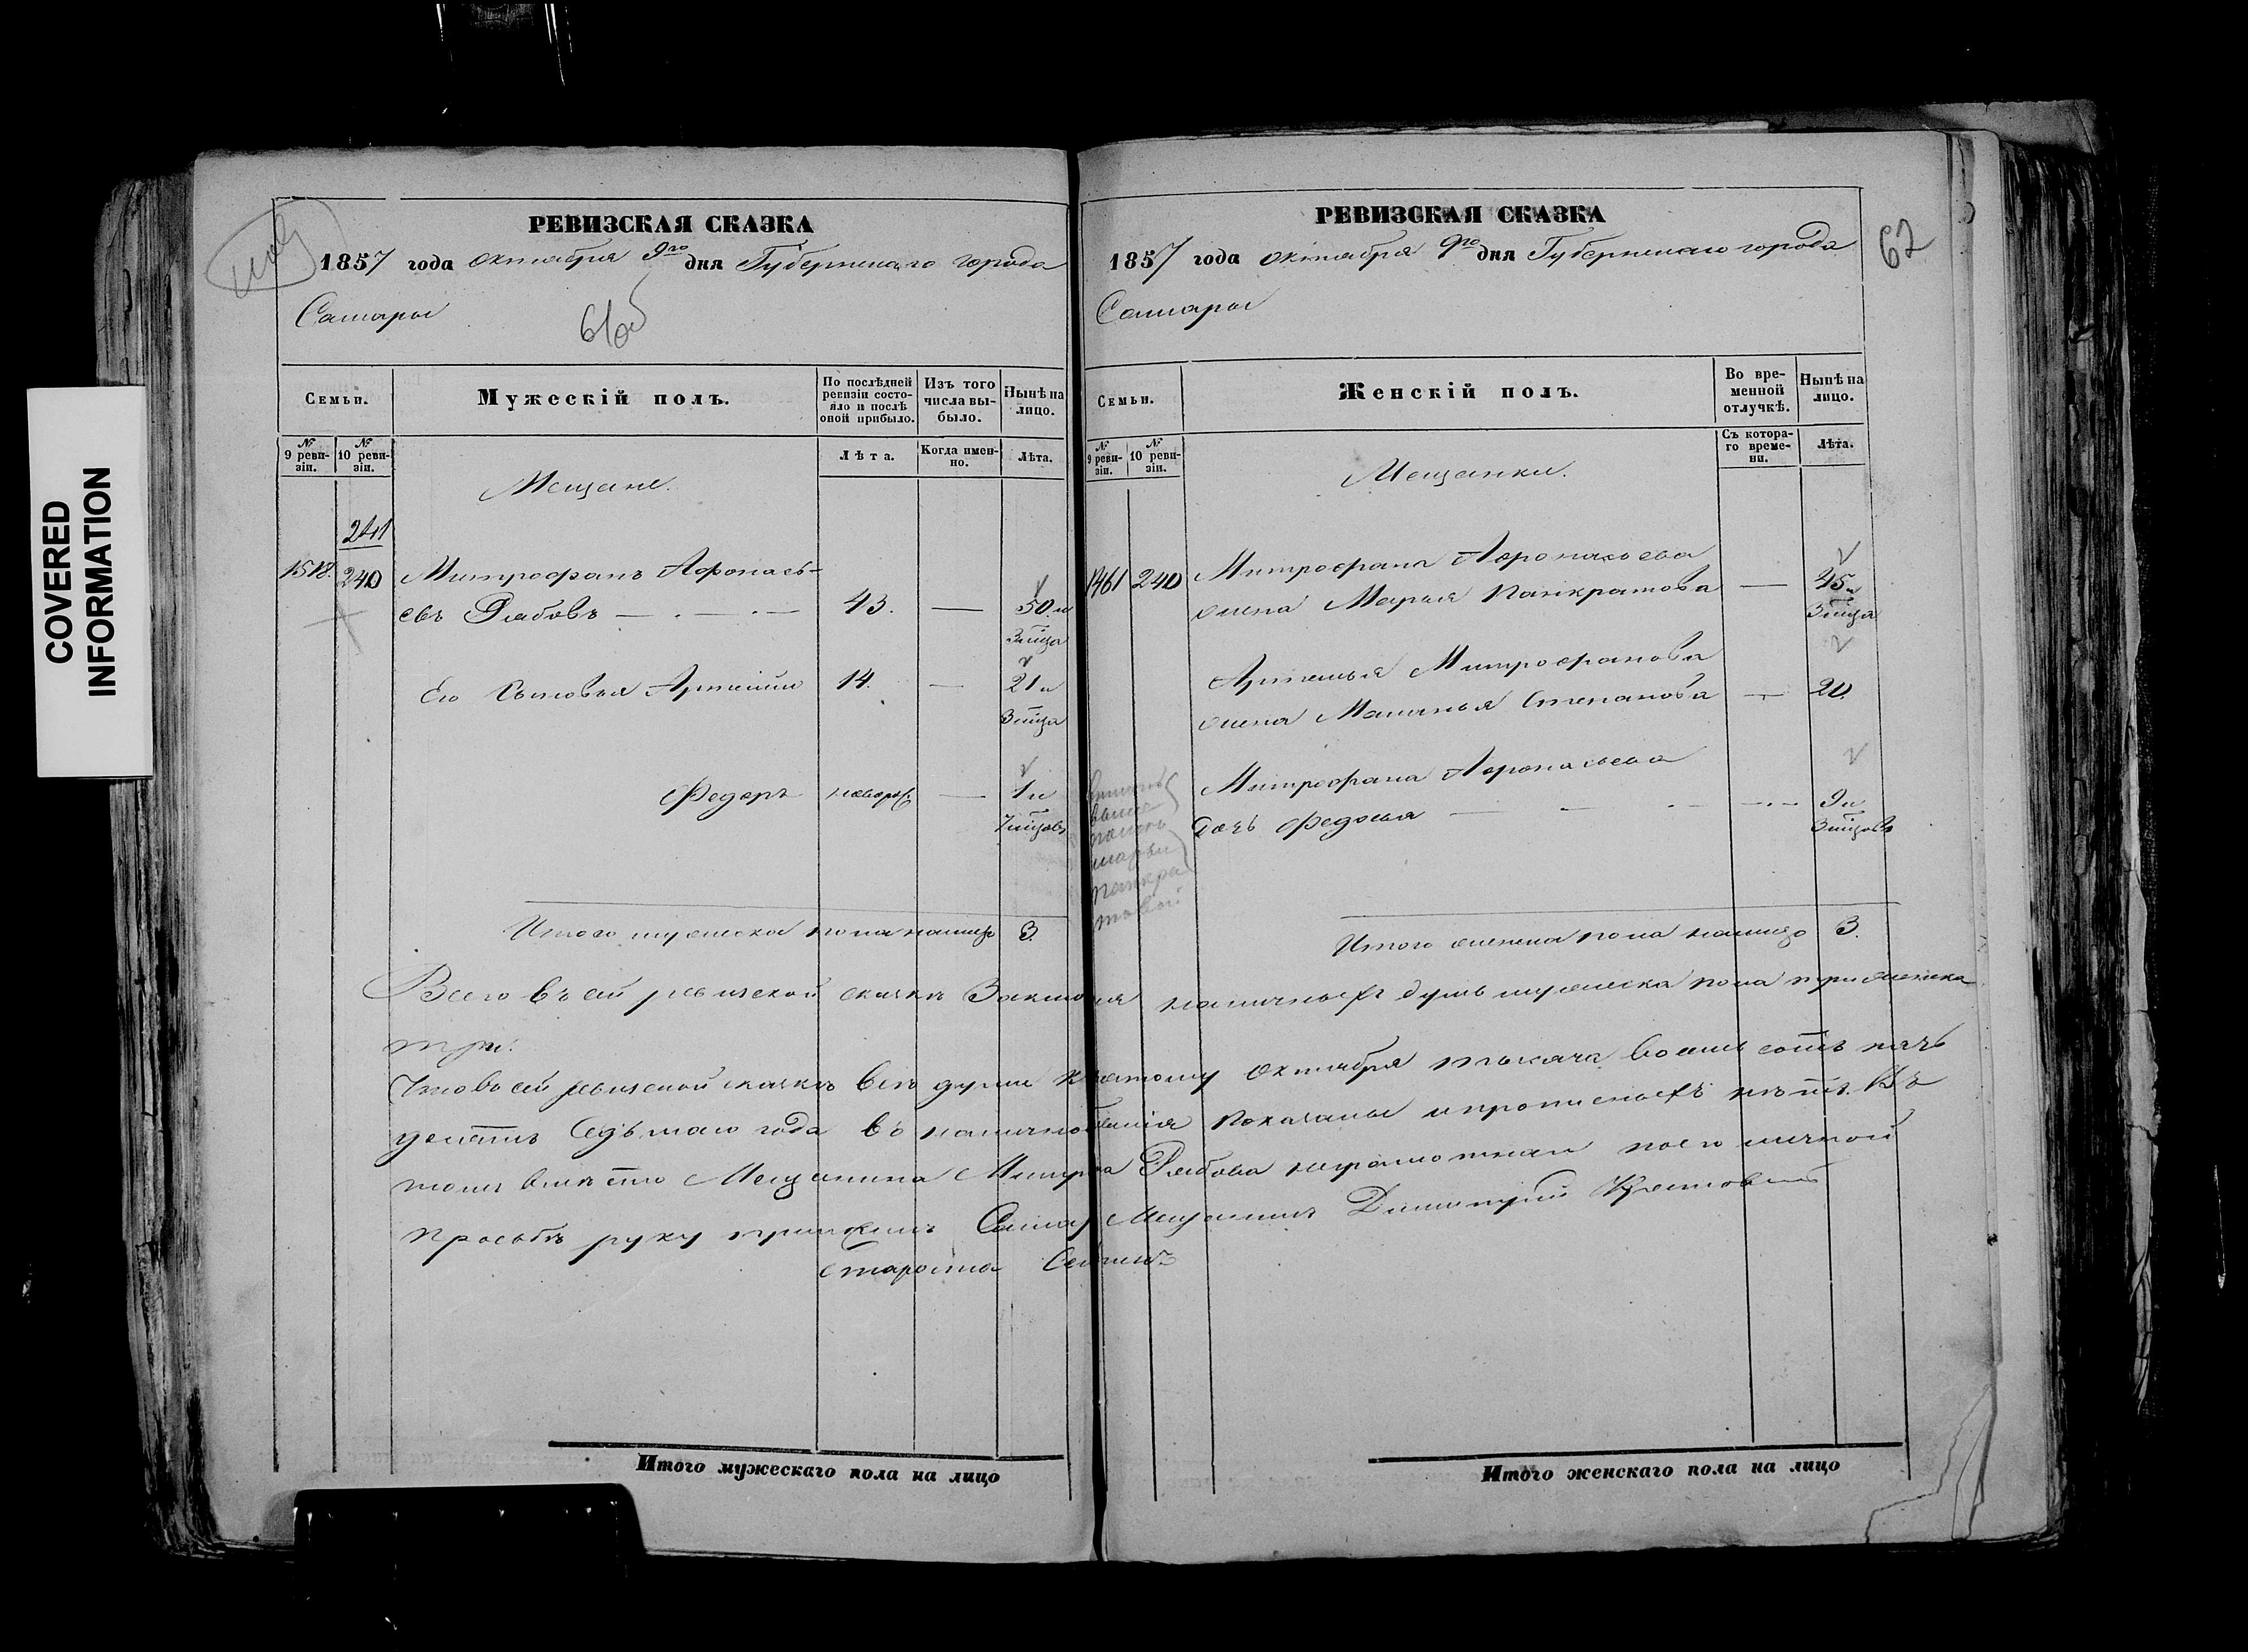 COVERED
INFORMATION
РЕВИЗСКАЯ СКАЗКА
1857 года Октября 9го дня Губернскаго города
Самары
61об
Семьи.
Мужескій полъ.
По послѣдней ревизіи состояло и послѣ оной прибыло.
Изъ того числа выбыло.
Нынѣ на лицо.
№ 9 ревизіи.
№ 10 ревизіи.
Лѣта.
Когда именно.
Лѣта.
Мещане.
241
1518. 240 Митрофанъ Афонасьевъ Рябовъ — 43. — 50 и
3 мца
Его Сыновья Артемій 14. — 21 и
3 мца
Федоръ новорж. — 1 и
7 мцовъ
Итого мужеска пола налицо 3.
РЕВИЗСКАЯ СКАЗКА
1857 года Октября 9го дня Губернскаго города
Самары
62
Семьи.
Женскій полъ.
Во временной отлучкѣ.
Нынѣ на лицо.
№ 9 ревизіи.
№ 10 ревизіи.
Съ котораго времени.
Лѣта.
Мещанки.
1461 240 Митрофана Афонасьева
жена Марья Панкратова — 45 и
3 мца
Артемья Митрофанова
жена Маланья Степанова — 20.
Митрофана Афонасьева
дочь Федосья — 9 и
3 мцовъ
Марьи
Панкра
товой
Итого женска пола налицо 3.
Всего въ сей ревизской сказкѣ наличныхъ душъ мужеска пола три женска
три.
Что въ сей ревизской сказкѣ всѣ души октября тысяча восемь сотъ пять
десятъ седьмаго года въ показаны и прописныхъ нѣтъ. Въ
томъ вмѣсто Мещанина Митро Рябова неграмотнаго по его личной
просьбѣ руку приложилъ Самар Мещанинъ Димитрий
Староста
Итого мужескаго пола на лицо
Итого женскаго пола на лицо